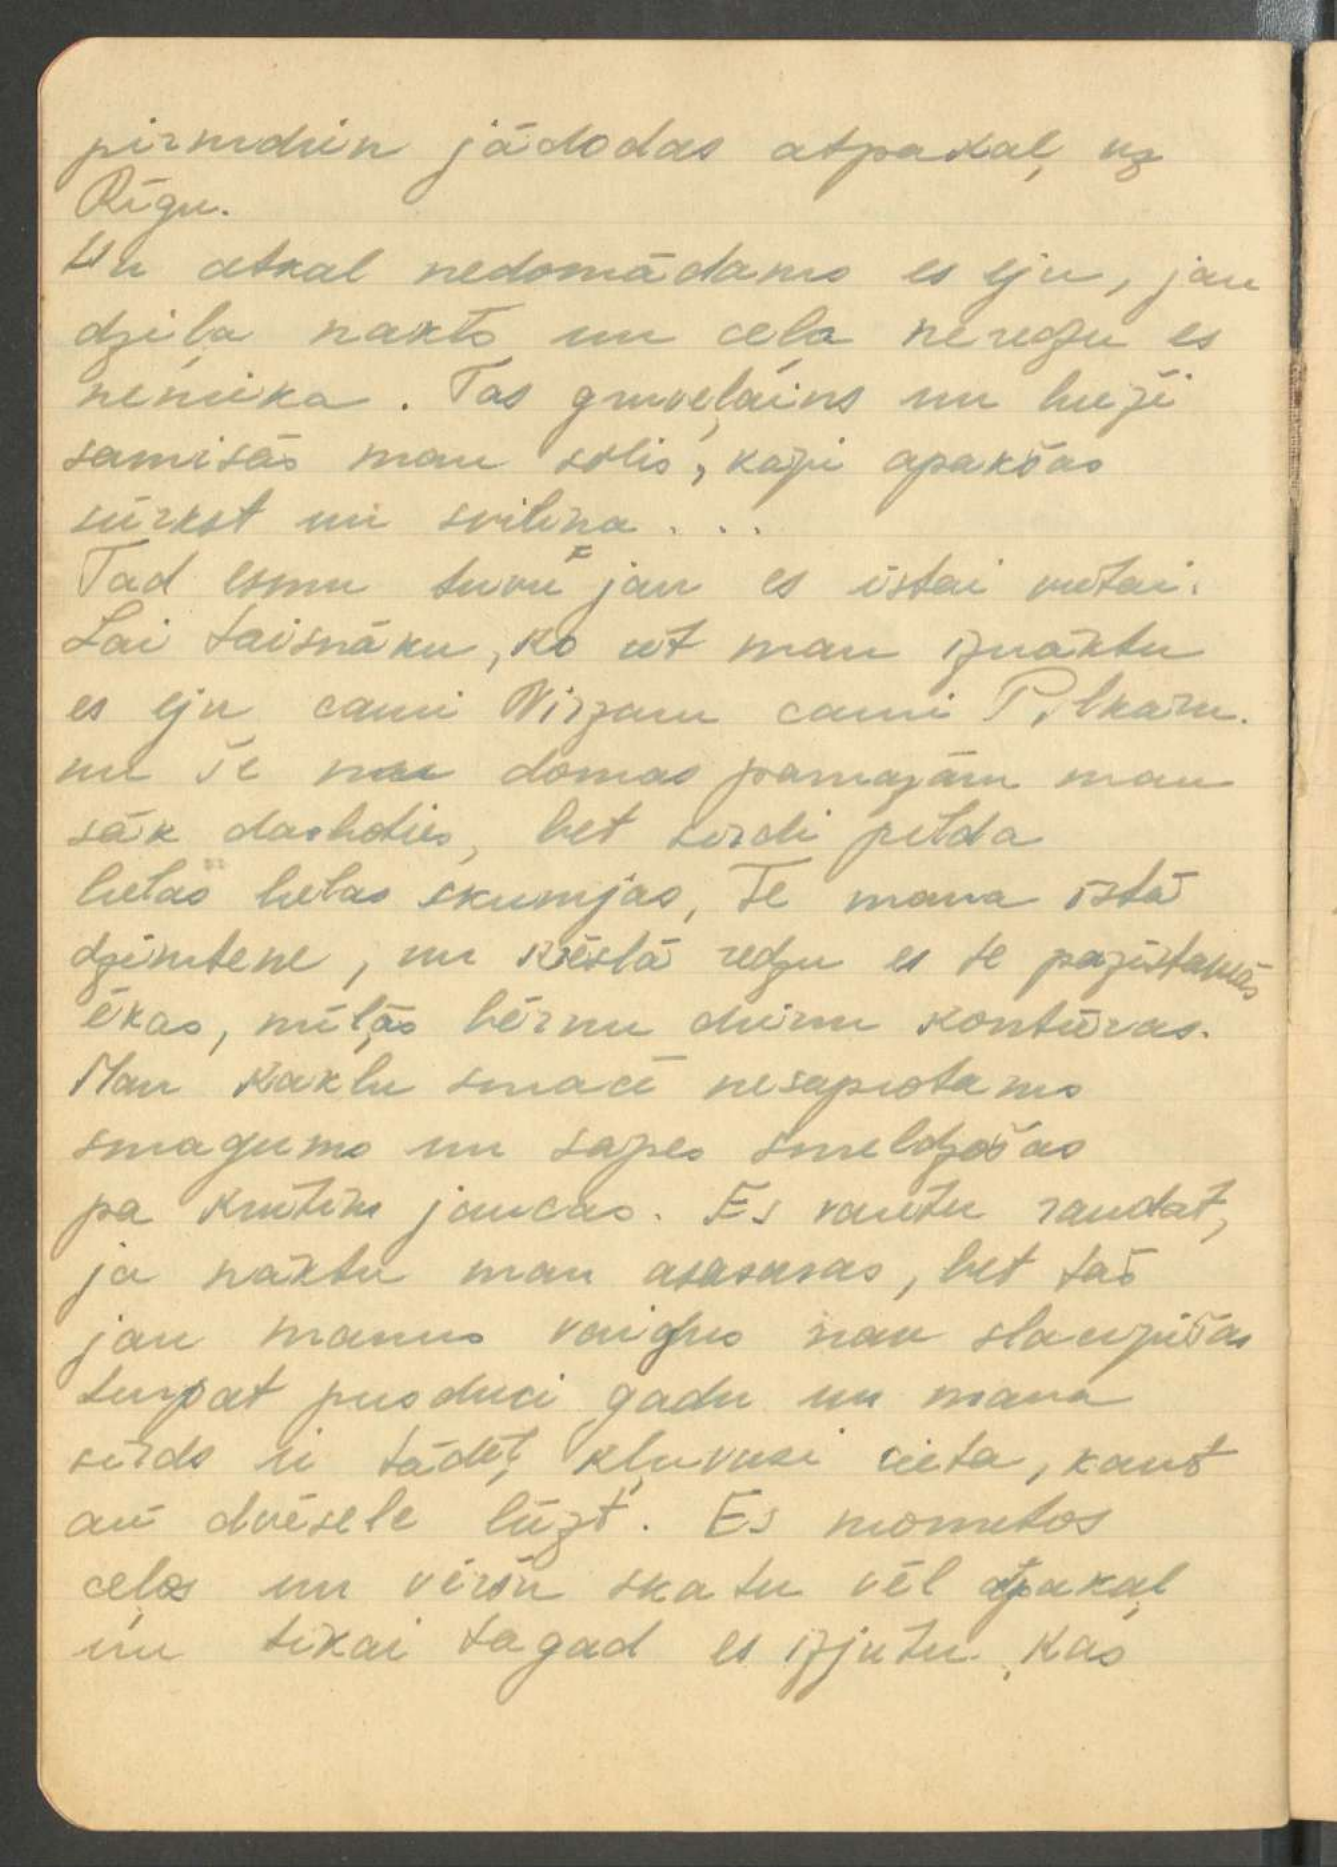 pirmdien jādodas atpakaļ uz
Rīgu.
Un atkal nedomādams es eju, jau
dziļa nakts un ceļa neredzu es
nenieka. Tas gruveļains un bieži
samisās man solis, kāji apakšas
sūrkst un svilina...
Tad esmu tuvu jau es īstai vietai.
Lai taisnāku, ko iet man iznāktu
es eju cauri Virzam cauri Pilkaln.
un še domas pamazām man
sāk dasboties, bet sirdi pilda
lielas lielas skumjas, Te mana īstā
dzimtene, un krēslā redzu es te pazīstamās
ēkas, mīļās bērnu dienu kontūras.
Man kaklu smacē nesaprotams
smagums un sāpes smeldzošas
pa krūtīm jaucas. Es varētu raudāt,
ja nāktu man asasaras, bet tās
jau manus vaigus nav slacījušas
turpat pusduci gadu un mana
sirds ir tādēļ kļuvusi cieta, kaut
arī dvēsele lūzt. Es nometos
ceļos un vēršu skatu vēl atpakaļ
un tikai tagad es izjutu, kas